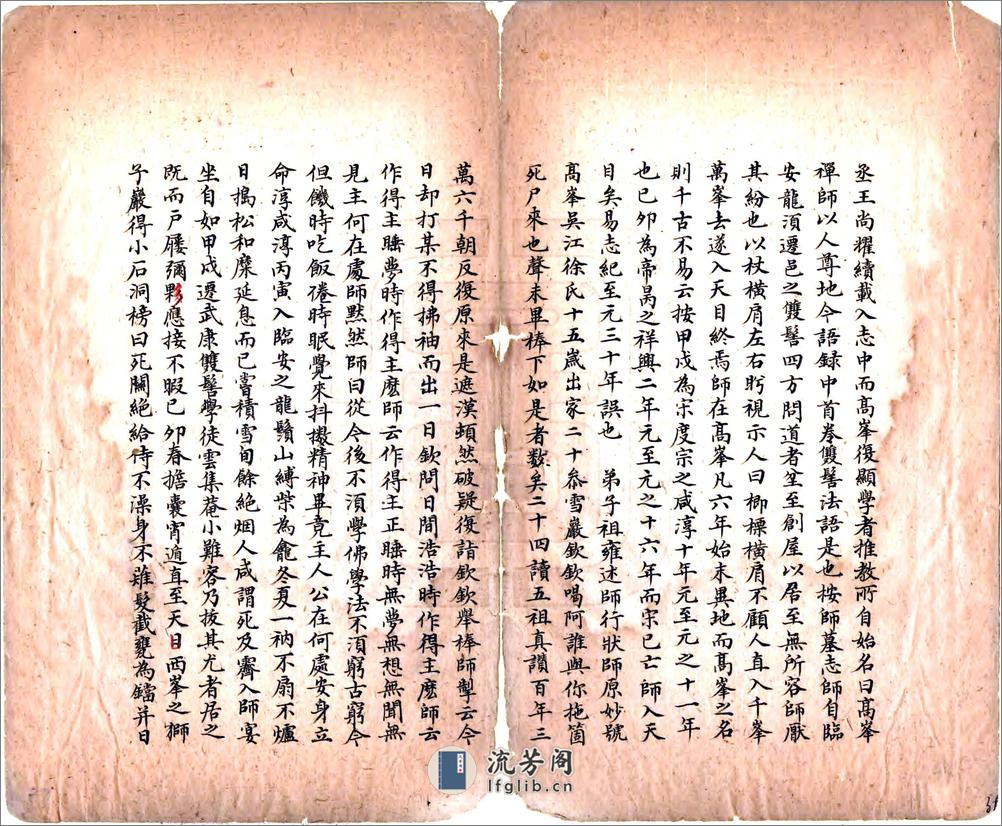 丞王尚耀續載入志中而高峯復顯學者推教所自始名曰高峯
禪師以人尊地今語錄中首卷雙髻法語是也按師墓志師自臨
安龍湏遷邑之雙髻四方問道者坌至創屋以居至無所容師厭
其紛也以杖橫肩左右盻視示人曰楖標橫肩不顧人直入千峯
萬峯去遂入天目終焉師在高峯凡六年始末異地而高峯之名
則千古不易云按甲戌為宋度宗之咸淳十年元至元之十一年
也已卯為帝昺之祥興二年元至元之十六年而宋已亡師入天
目矣易志紀至元三十年誤也 弟子祖雍述師行狀師原妙號
高峯吳江徐氏十五歲出家二十叅雪巖欽欽喝阿誰與你拖箇
死尸來也聲未畢棒下如是者数矣二十四讀五祖真讚百年三
萬六千朝反復原來是遮漢頓然破疑復詣欽欽舉棒師掣云今
日却打某不得拂袖而出一日欽問日間浩浩時作得主麽師云
作得主睡夢時作得主麽師云作得主正睡時無夢無想無聞無
見主何在處師默然師曰從今後不湏學佛學法不湏窮古窮今
但饑時吃飯倦時眠覺來抖擻精神畢竟主人公在何處安身立
命淳咸淳丙寅入臨安之龍鬚山縛柴為龕冬夏一衲不扇不爐
日搗松和糜延息而已嘗積雪旬餘絕烟人咸謂死及霽入師宴
坐自如甲戍遷武康雙髻學徒雲集菴小難容乃拔其尤者居之
既而戶屨彌夥應接不暇已卯春擔囊宵遁直至天目西峯之獅
子巖得小石洞榜曰死關絕給侍不澡身不薙髮截甕為鐺并日
流芳阁
lfglib.cn